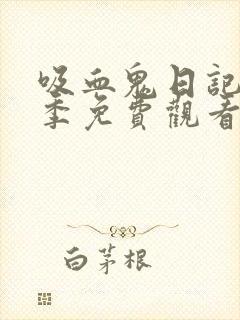 吸血鬼日記
季免費觀看
白茅根